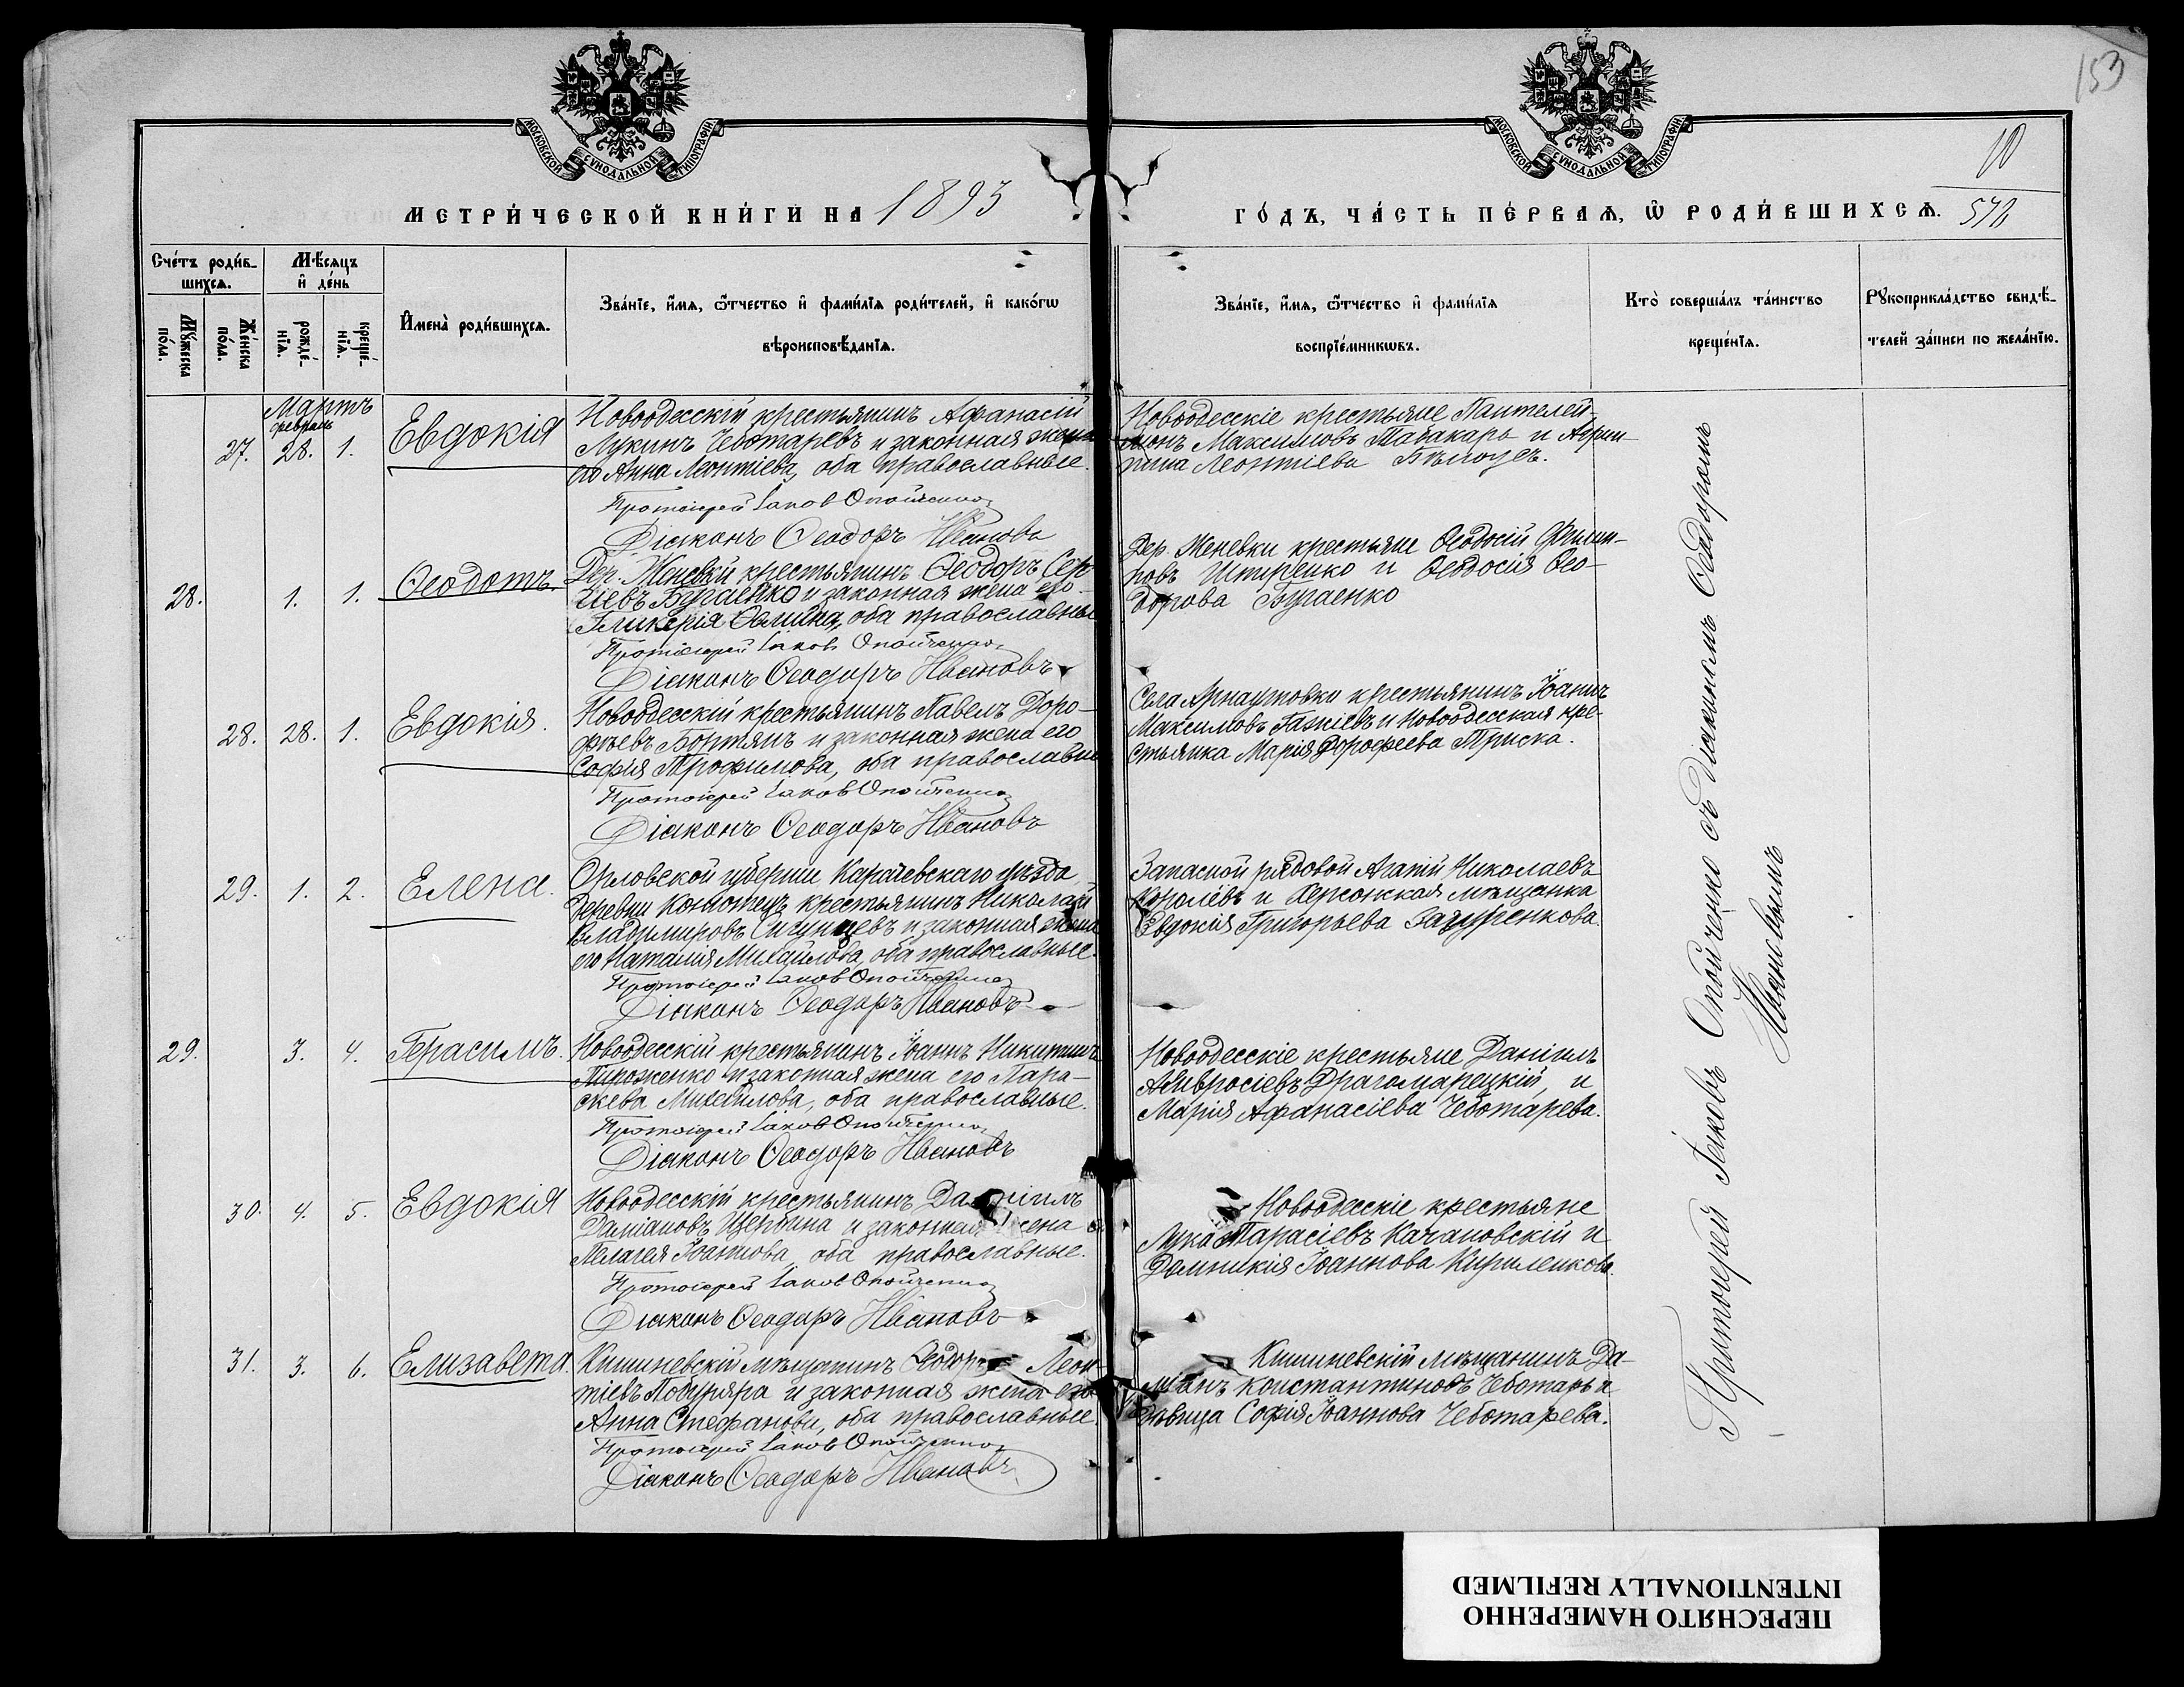 153
МОСКОВСКОЙ СУНОДАЛЬНОЙ ТИПОГРАФІИ
МОСКОВСКОЙ СУНОДАЛЬНОЙ ТИПОГРАФІИ
10
572
МЕТРИ́ЧЕСКОЙ КНИ́ГИ НА 1893
ГО́ДЪ, ЧА́СТЬ ПЕ́РВАѦ, Ѡ҆ РОДИ́ВШИХСѦ.
Сче́тъ роди́в-
шихсѧ.
Мѣ́сѧцъ
и҆ де́нь
Мꙋ́жеска
по́ла.
Же́нска
по́ла.
рожде́-
нїѧ.
креще́-
нїѧ.
И҆мена̀ роди́вшихсѧ.
Зва́нїе, и҆́мѧ, ѻ҆́тчество и҆ фами́лїѧ роди́телей, и҆ како́гѡ
вѣроисповѣ́данїѧ.
Зва́нїе, и҆́мѧ, ѻ҆́тчество и҆ фами́лїѧ
воспрїе́мникѡвъ.
Кто̀ соверша́лъ та́инство
креще́нїѧ.
Рꙋкоприкла́дство свидѣ́-
телей за́писи по жела́нїю.
Мартъ
февраль
27. 28. 1. Евдокія
Новоодесскій крестьянинъ Афанасій
Лукинъ Чеботаревъ и законная жена
его Анна Леонтіева, оба православные.
Протоіерей Іаков Опойченко
Діаконъ Ѳеодоръ Ивановъ
Новоодесскіе крестьяне Пантелей-
монъ Максимовъ Табакарь и Агрип-
пина Леонтіева Бѣлоусъ.
28. 1. 1. Ѳеодотъ.
Дер. Женевки крестьянинъ Ѳеодоръ Сер-
гіевъ Бугаенко и законная жена его
Гликерія, оба православные
Протоіерей Іаковъ Опойченко
Діаконъ Ѳеодоръ Ивановъ
Дер. Женевки крестьяне Ѳеодосій Филип-
повъ Штиренко и Ѳеодосія Ѳео-
дорова Бугаенко
28. 28. 1. Евдокія.
Новоодесскій крестьянинъ Павелъ Доро-
феевъ Бортянъ и законная жена его
Софія Трофимова, оба православны
Протоіерей Іаков Опойченко
Діаконъ Ѳеодоръ Ивановъ
Села Арнаутовки крестьянинъ Іоаннъ
Максимовъ Гажіевъ и Новоодесская кре-
стьянка Марія Дорофеева Триска.
29. 1. 2. Елена.
Орловской губерніи Карачевскаго уѣзда,
деревни Коптотецъ крестьянинъ Николай
Владимировъ Сигунцевъ и законная жена
его Наталія Михайлова, оба православные.
Протоіерей Іаков Опойченко
Діаконъ Ѳеодоръ Ивановъ
Запасной рядовой Агапій Николаевъ
Королёвъ и Херсонская мѣщанка
Евдокія Григорьева Загуренкова.
29. 3. 4. Герасимъ.
Новоодесскій крестьянинъ Іоаннъ Никитинъ
Пироженко и законная жена его Пара-
скева Михайлова, оба православные.
Протоіерей Іаков Опойченко
Діаконъ Ѳеодоръ Ивановъ
Новоодесскіе крестьяне Даніилъ
Амвросіевъ Драгомарецкій, и
Марія Афанасіева Чеботарева.
30. 4. 5. Евдокія
Новоодесскій крестьянинъ Даніилъ
Даміановъ Щербина и законная жена
Пелагея Іоаннова, оба православные.
Протоіерей Іаков Опойченко
Діаконъ Ѳеодоръ Ивановъ
Новоодесскіе крестьяне
Лука Тарасіевъ Качановскій и
Домникія Іоаннова Кириленкова.
31. 3. 6. Елизавета.
Кишиневскій мѣщанинъ Ѳеодоръ Леон-
тіевъ Побуряра и законная жена его
Анна Стефанова, оба православные.
Протоіерей Іаков Опойченко
Діаконъ Ѳеодоръ Ивановъ
Кишиневскій мѣщанинъ Да-
міанъ Константиновъ Чеботарь и
дѣвица Софія Іоаннова Чеботарева.
Протоіерей Іаковъ Опойченко съ діакономъ Ѳеодоромъ
Ивановымъ
ПЕРЕСНЯТО НАМЕРЕННО
INTENTIONALLY REFILMED